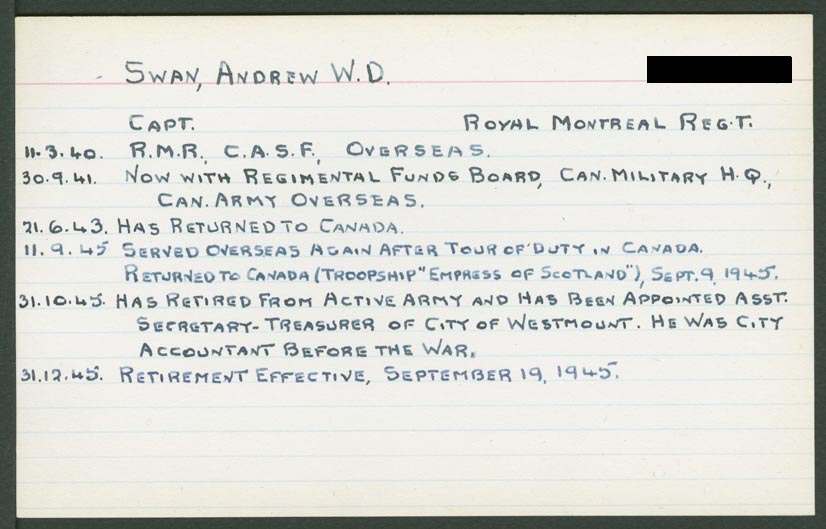 SWAN, ANDREW W.D.
CAPT. ROYAL MONTREAL REG'T.
11.3.40. R.M.R., C.A.S.F., OVERSEAS.
30.9.41. NOW WITH REGIMENTAL FUNDS BOARD, CAN. MILITARY H.Q.,
CAN. ARMY OVERSEAS.
21.6.43. HAS RETURNED TO CANADA.
11.9.45 SERVED OVERSEAS AGAIN AFTER TOUR OF DUTY IN CANADA.
RETURNED TO CANADA (TROOPSHIP "EMPRESS OF SCOTLAND"), SEPT. 9, 1945.
31.10.45. HAS RETIRED FROM ACTIVE ARMY AND HAS BEEN APPOINTED ASST.
SECRETARY-TREASURER OF CITY OF WESTMOUNT. HE WAS CITY
ACCOUNTANT BEFORE THE WAR.
31.12.45. RETIREMENT EFFECTIVE, SEPTEMBER 19, 1945.